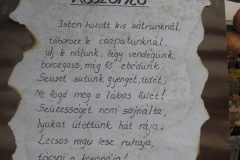 Köszöntő
Isten hozott kis sátrunknál,
táborozó k csapatunknál.
ülj le nálunk, légy vendégünk,
borozgass, míg fő ebédünk.
Szívet sütünk gyenget, üdét,
Ne fogd meg a lábos fülét!
Szüzességét nem sajnálta,
lyukat ütöttünk hát rája.
Lecsós ragu lesz ruhája,